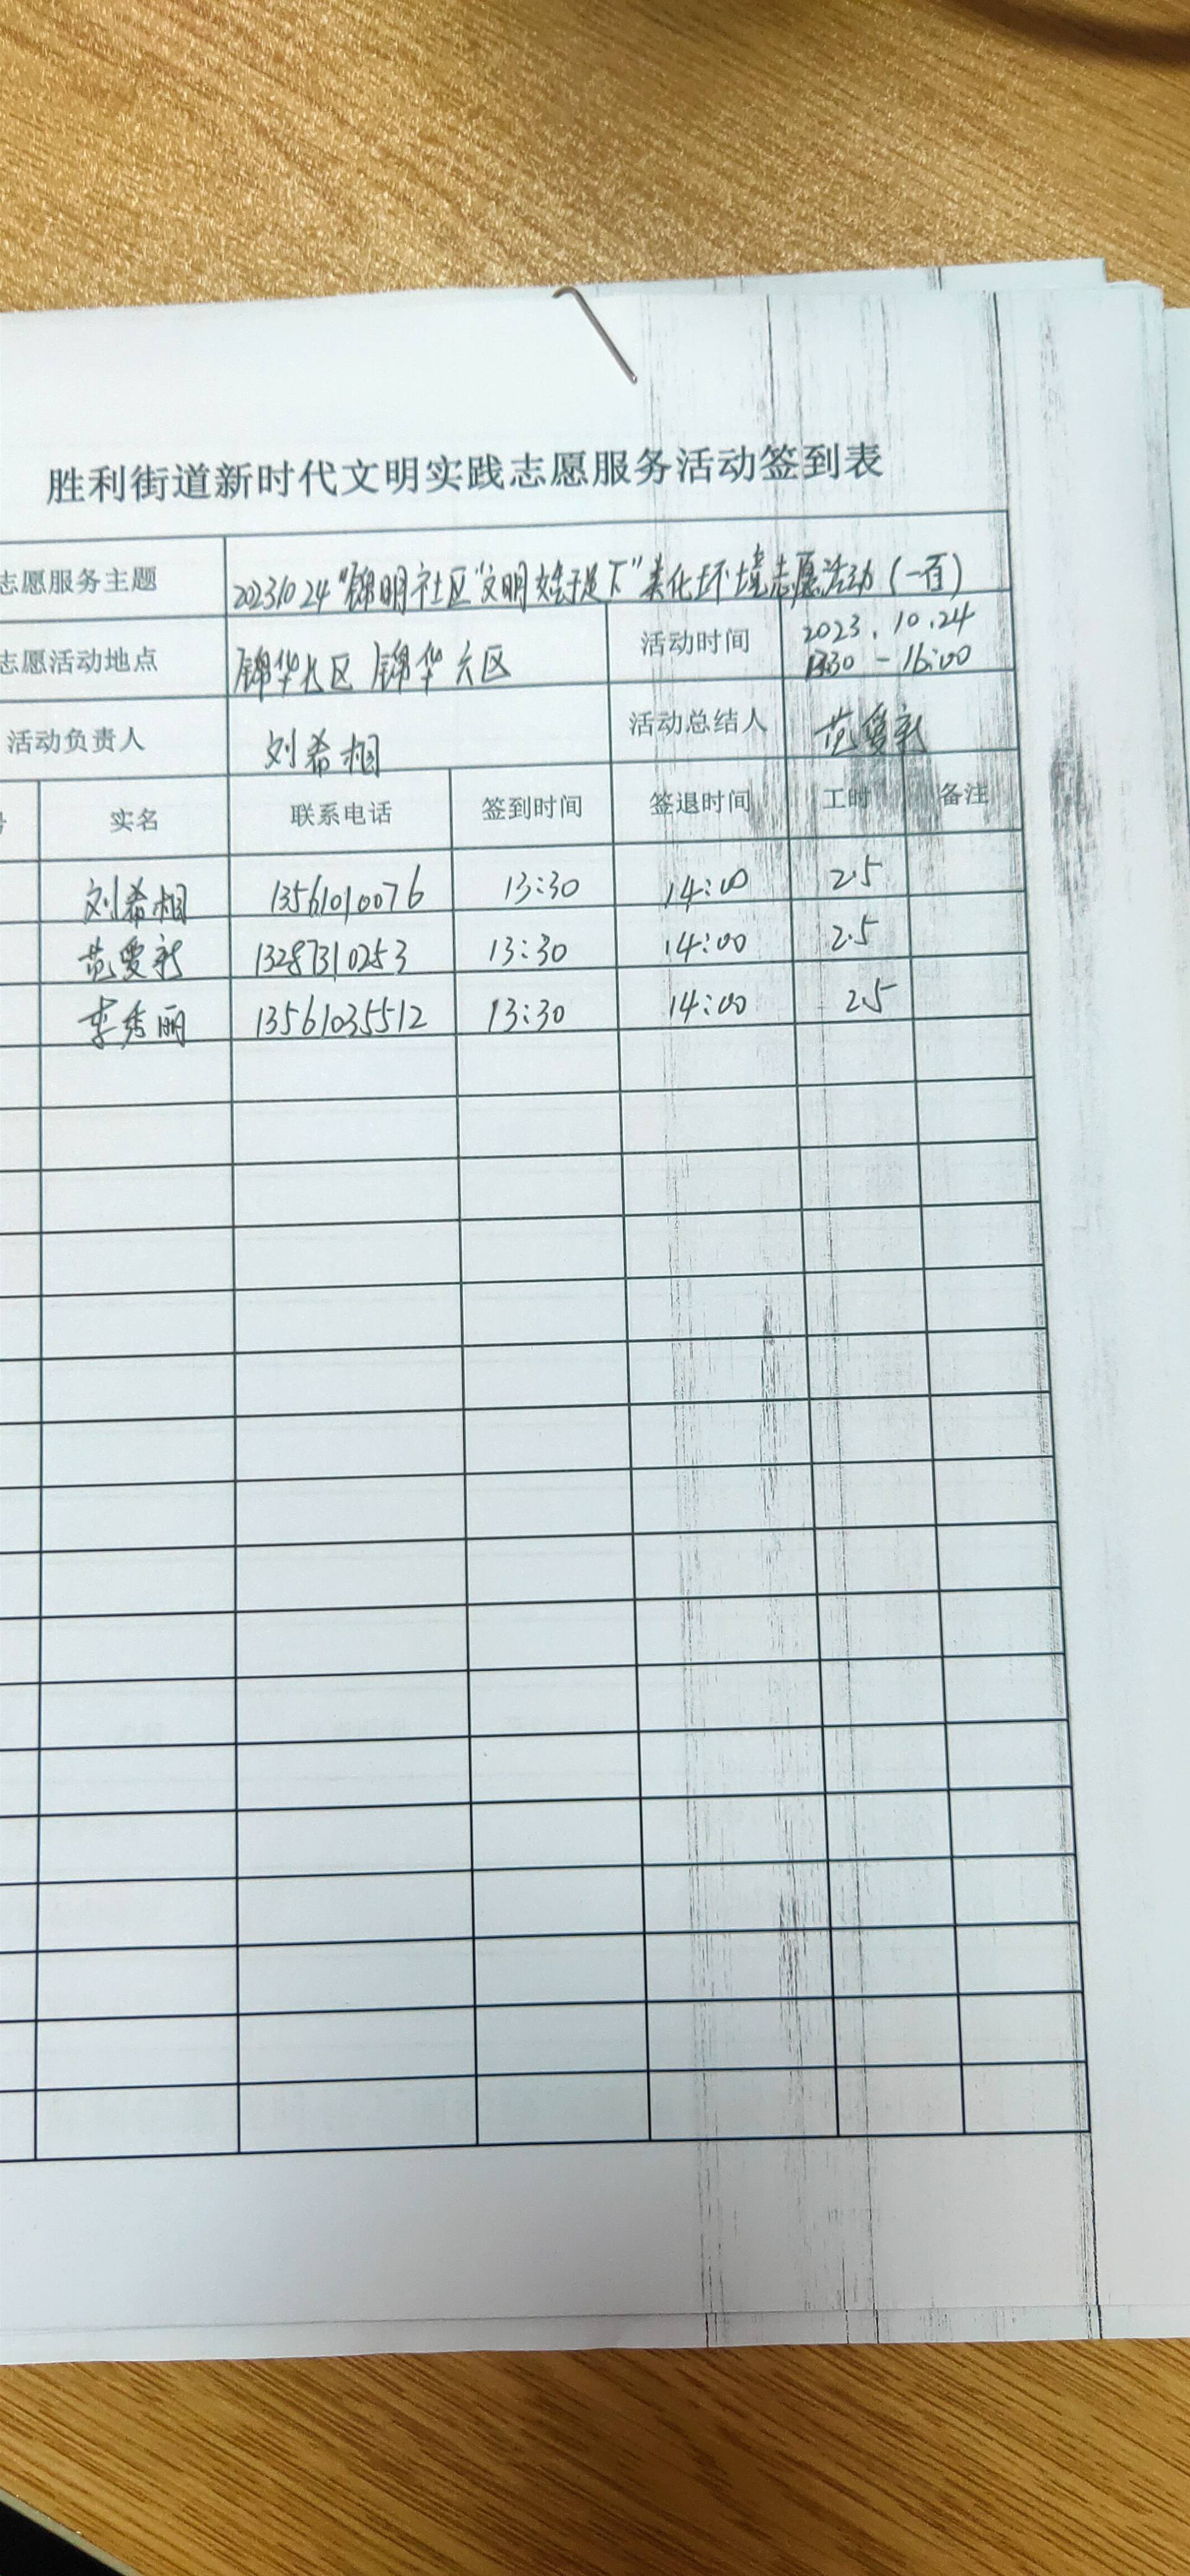 胜利街道新时代文明实践志愿服务活动签到表
志愿服务主题 20231024"锦明社区"文明始于足下"美化环境志愿活动(一百)
志愿活动地点 锦华七区 锦华六区 活动时间 2023.10.24
13:30-16:00
活动负责人 刘希相 活动总结人 范爱新
号 实名 联系电话 签到时间 签退时间 工时 备注
刘希相 13561010076 13:30 14:00 2.5
范爱新 13287310253 13:30 14:00 2.5
李秀丽 13561035512 13:30 14:00 2.5